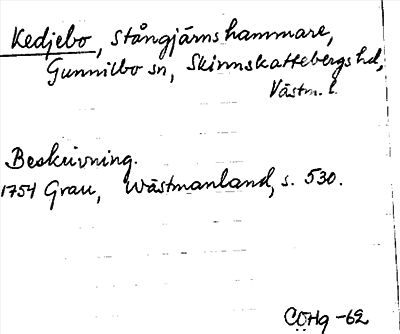 Kedjebo, stångjärnshammare,
Gunnilbo sn, Skinnskattebergs hd,
Västm. l.
Beskrivning.
1754 Grau, Wästmanland, s. 530.
CÖHg -62